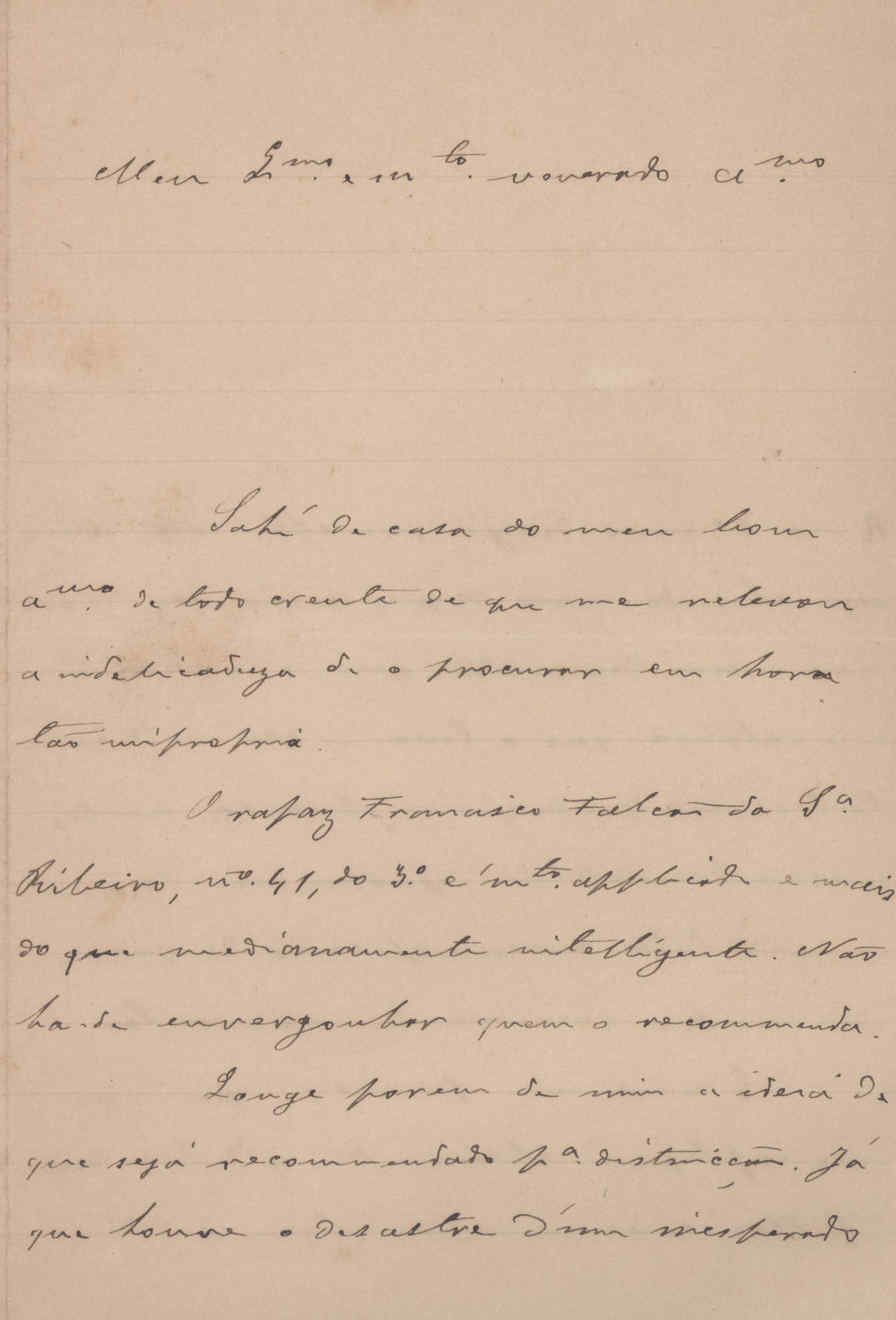 Meu Exmo. e mto. venerado amo.
Sahi de casa do meu bom
amo. de todo crente de que me relevou
a indelicadeza de o procurar em hora
tão impropria.
O rapaz Francisco Falcão da Sa.
Ribeiro, no. 41, do 3.o é mto. applicado e mais
do que medianamente intelligente. Não
ha-de envergonhar quem o recommenda.
Longe porem de mim a ideia de
que seja recommendado pa. distincção. Já
que houve o desastre d'um inesperado